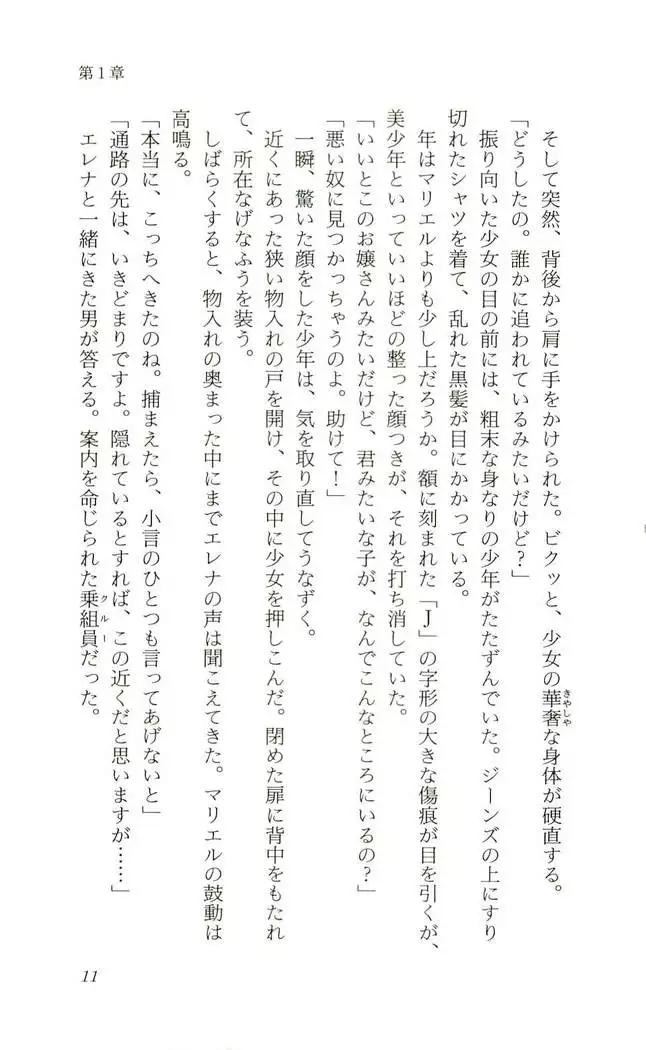 第1章
そして突然、背後から肩に手をかけられた。ビクッと、少女の華奢な身体が硬直する。
きやしや
「どうしたの。誰かに追われているみたいだけど?」
振り向いた少女の目の前には、粗末な身なりの少年がたたずんでいた。ジーンズの上にすり
切れたシャツを着て、乱れた黒髪が目にかかっている。
年はマリエルよりも少し上だろうか。額に刻まれた「J」の字形の大きな傷痕が目を引くが、
美少年といっていいほどの整った顔つきが、それを打ち消していた。
「いいとこのお嬢さんみたいだけど、君みたいな子が、なんでこんなところにいるの?」
「悪い奴に見つかっちゃうのよ。助けて!」
一瞬、驚いた顔をした少年は、気を取り直してうなずく。
近くにあった狭い物入れの戸を開け、その中に少女を押しこんだ。閉めた扉に背中をもたれ
て、所在なげなふうを装う。
しばらくすると、物入れの奥まった中にまでエレナの声は聞こえてきた。マリエルの鼓動は
高鳴る。
「本当に、こっちへきたのね。捕まえたら、小言のひとつも言ってあげないと」
「通路の先は、いきどまりですよ。隠れているとすれば、この近くだと思いますが……」
エレナと一緒にきた男が答える。案内を命じられた乗組員だった。
クルー
11